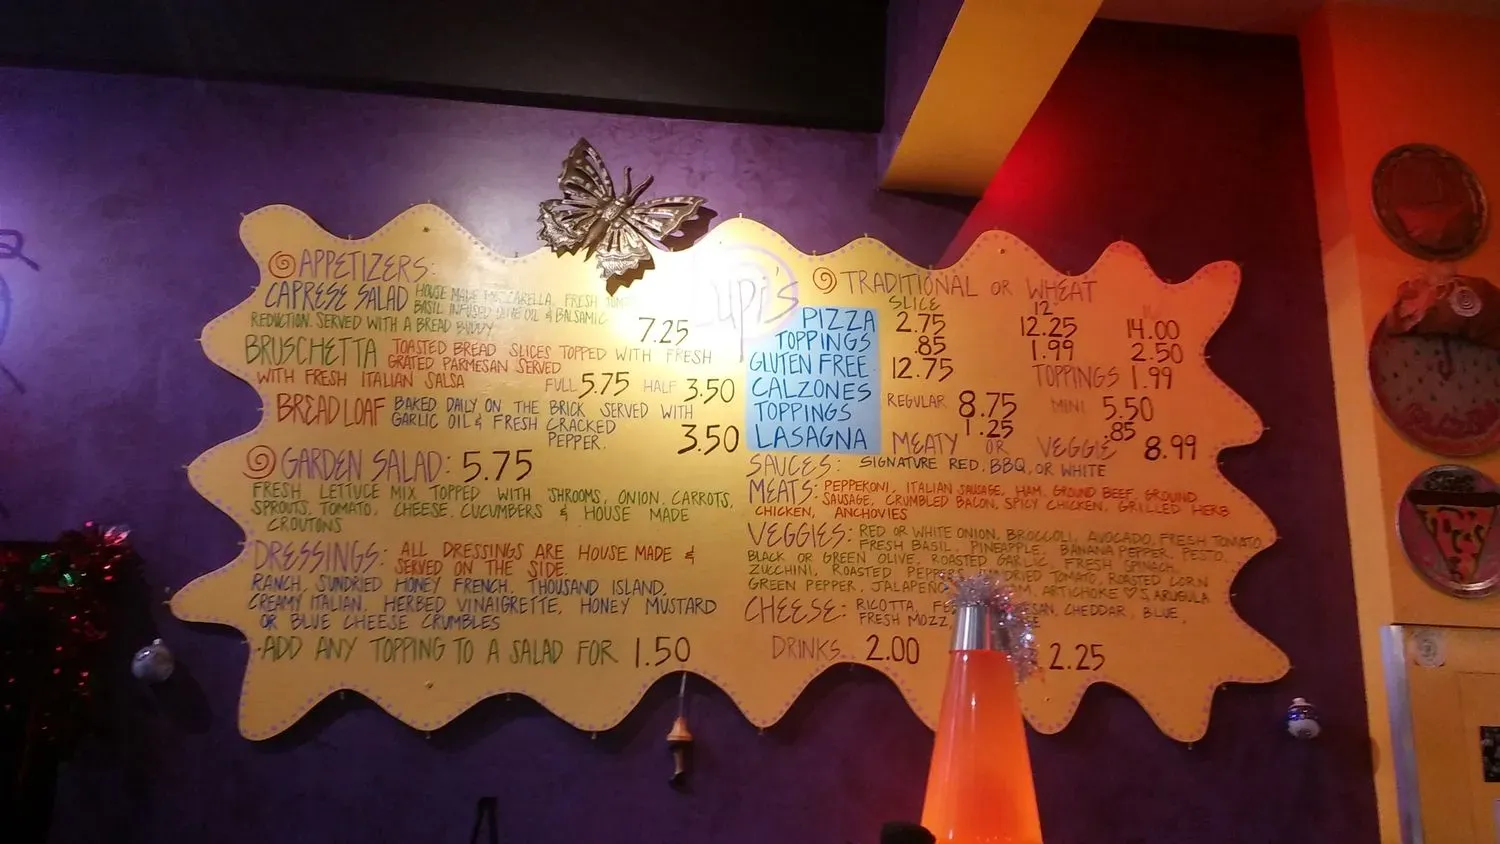 APPETIZERS:
CAPRESE SALAD HOUSE MADE MOZZARELLA, FRESH
BASIL INFUSED OLIVE OIL & BALSAMIC
REDUCTION. SERVED WITH A BREAD BUDDY 7.25
BRUSCHETTA TOASTED BREAD SLICES TOPPED WITH FRESH
GRATED PARMESAN SERVED
WITH FRESH ITALIAN SALSA FULL 5.75 HALF 3.50
BREAD LOAF BAKED DAILY ON THE BRICK SERVED WITH
GARLIC OIL & FRESH CRACKED
PEPPER. 3.50
GARDEN SALAD: 5.75
FRESH LETTUCE MIX TOPPED WITH 'SHROOMS, ONION, CARROTS,
SPROUTS, TOMATO, CHEESE, CUCUMBERS & HOUSE MADE
CROUTONS
DRESSINGS: ALL DRESSINGS ARE HOUSE MADE &
SERVED ON THE SIDE.
RANCH, SUNDRIED HONEY FRENCH, THOUSAND ISLAND,
CREAMY ITALIAN, HERBED VINAIGRETTE, HONEY MUSTARD
OR BLUE CHEESE CRUMBLES
·ADD ANY TOPPING TO A SALAD FOR 1.50
Lupi's
TRADITIONAL OR WHEAT
SLICE 12
PIZZA 2.75 12.25 14.00
TOPPINGS .85 1.99 2.50
GLUTEN FREE 12.75 TOPPINGS 1.99
CALZONES REGULAR 8.75 MINI 5.50
TOPPINGS 1.25 .85
LASAGNA MEATY OR VEGGIE 8.99
SAUCES: SIGNATURE RED, BBQ, OR WHITE
MEATS: PEPPERONI, ITALIAN SAUSAGE, HAM, GROUND BEEF, GROUND
SAUSAGE, CRUMBLED BACON, SPICY CHICKEN, GRILLED HERB
CHICKEN, ANCHOVIES
VEGGIES: RED OR WHITE ONION, BROCCOLI, AVOCADO, FRESH TOMATO,
FRESH BASIL, PINEAPPLE, BANANA PEPPER, PESTO,
BLACK OR GREEN OLIVE, ROASTED GARLIC, FRESH SPINACH,
ZUCCHINI, ROASTED PEPPERS, SUNDRIED TOMATO, ROASTED CORN
GREEN PEPPER, JALAPEÑO ARTICHOKE ♡S, ARUGULA
CHEESE: RICOTTA, CHEDDAR, BLUE,
FRESH MOZZ
DRINKS 2.00 2.25